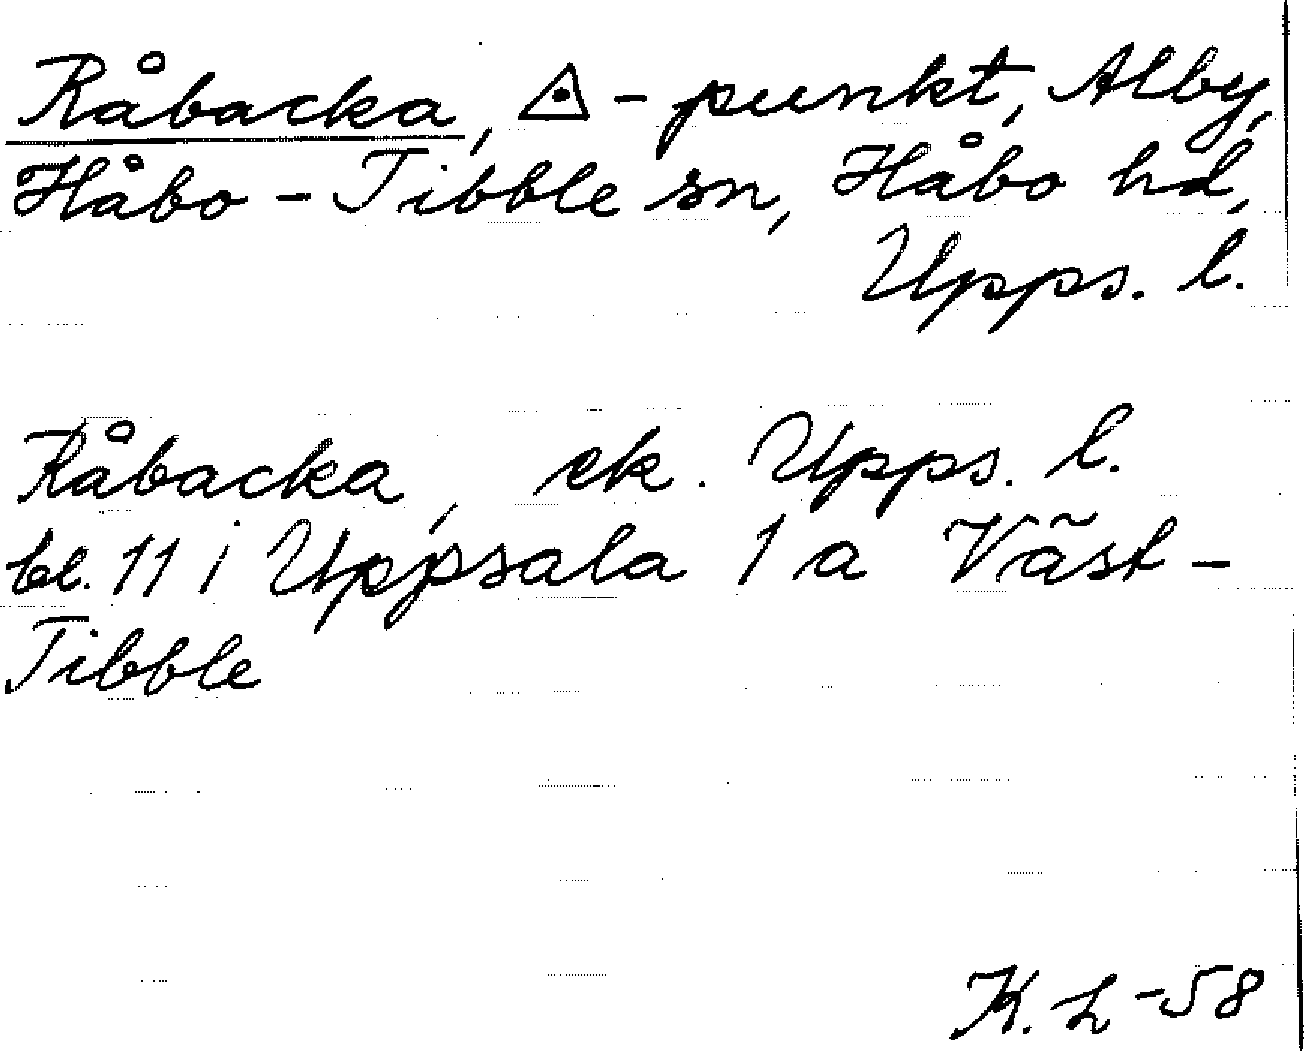 Råbacka, ◬-punkt, Alby,
Håbo-Tibble sn, Håbo hd,
Upps. l.
Råbacka, ek. Upps. l.
bl. 11 i Uppsala 1 a Väst-
Tibble
K. L -58